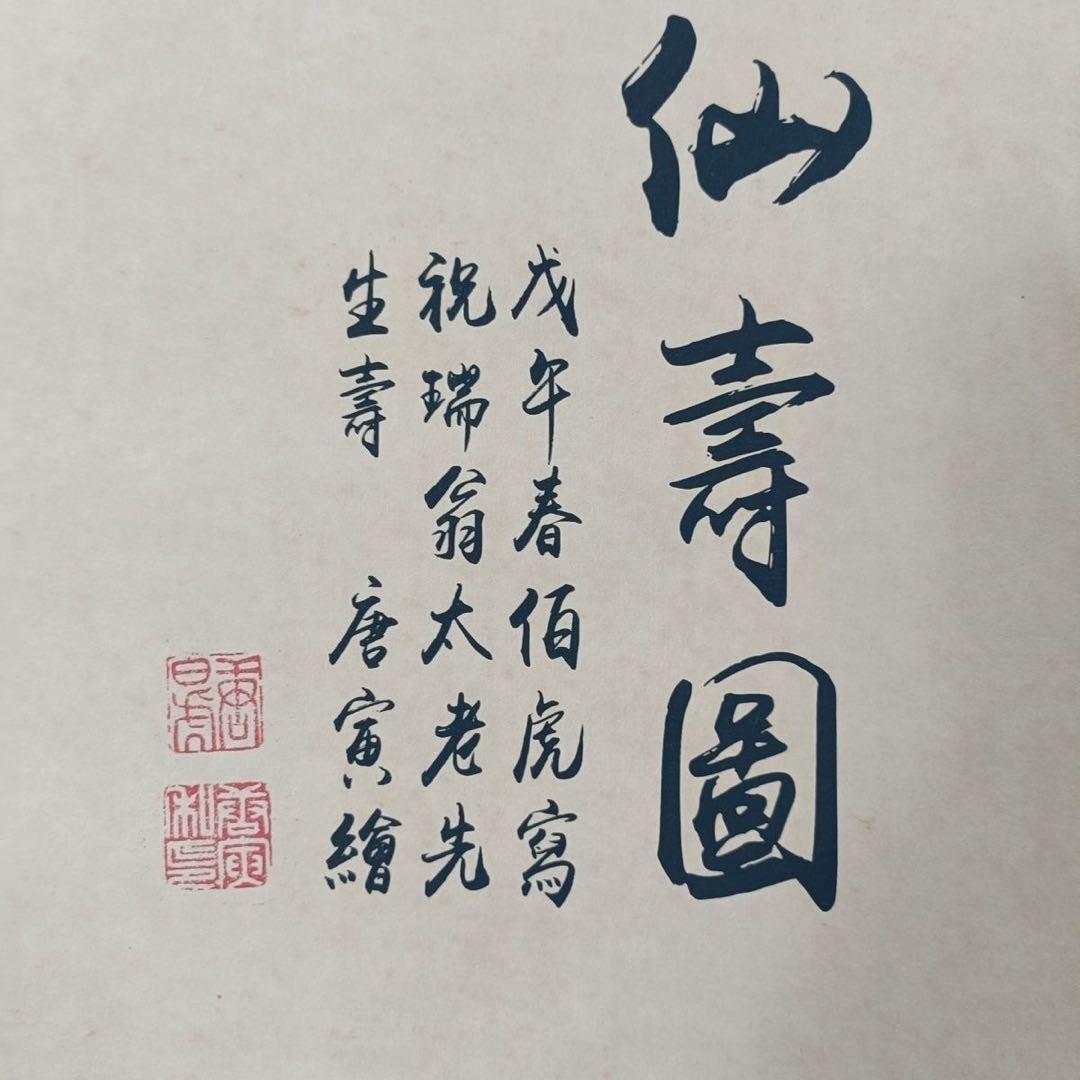 仙壽圖
戊午春伯虎寫
祝瑞翁太老先
生壽 唐寅繪
唐寅私印